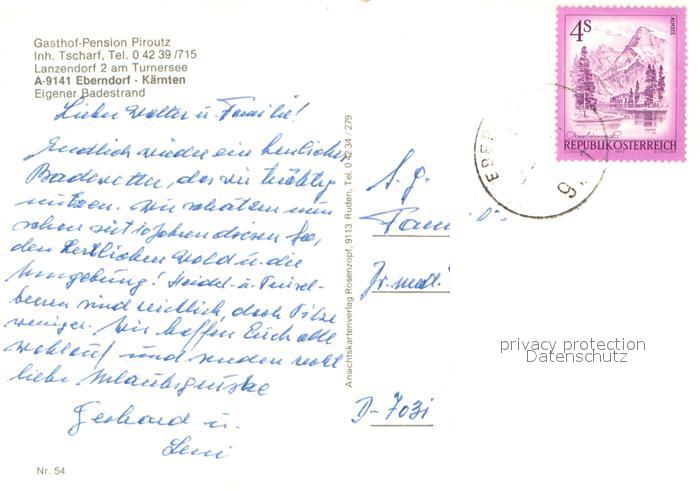 Gasthof-Pension Piroutz
Inh. Tscharf, Tel. 0 42 39 /715
Lanzendorf 2 am Turnersee
A-9141 Eberndorf - Kärnten
Eigener Badestrand
Lieber Walter u. Familie!
Endlich wieder ein herrliches
Badewetter, das wir kräftig
nützen. Wir schätzen nun
schon seit 10 Jahren diesen See,
den herrlichen Wald u. die
Umgebung! Heidel- u. Preisel-
beeren sind reichlich, doch Pilze
weniger. Wir hoffen Euch alle
wohlauf und senden recht
liebe Urlaubsgrüsse
Gerhard u.
Leni
Nr. 54
Ansichtskartenverlag Rosenzopf, 9113 Ruden, Tel. 0 42 34 / 279
4S
ALMSEE
REPUBLIK ÖSTERREICH
EBERN
9
Fam
Dr. med.
D-7031
privacy protection
Datenschutz